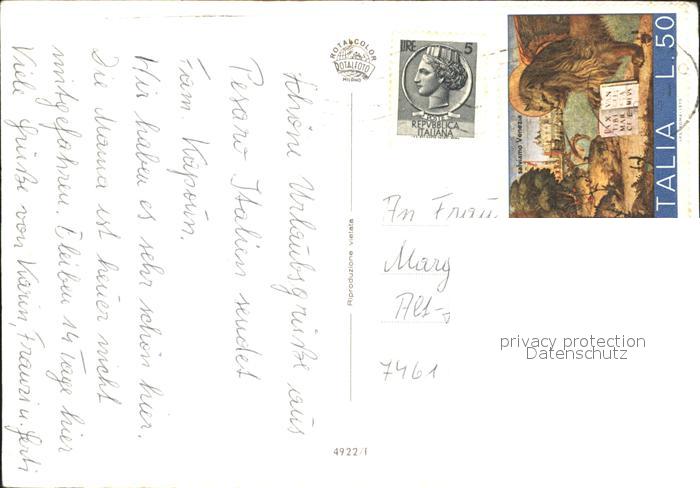 Schöne Urlaubsgrüße aus
Pesaro Italien sendet
Fam
Hir haben es sehr schön hier.
Die Mama ist heuer nicht
mitgefahren. Bleiben 14 Tage hier
Viele Grüße von Karin, Franzi u. Gerti
ROTALCOLOR
ROTALFOTO
MILANO
LIRE 5
POSTE
REPVBBLICA
ITALIANA
salviamo Venezia
PAX
TIBI
MAR
CE
ITALIA L. 50
Riproduzione vietata
An Frau
Marg
Alt-
7461
privacy protection
Datenschutz
4922/f